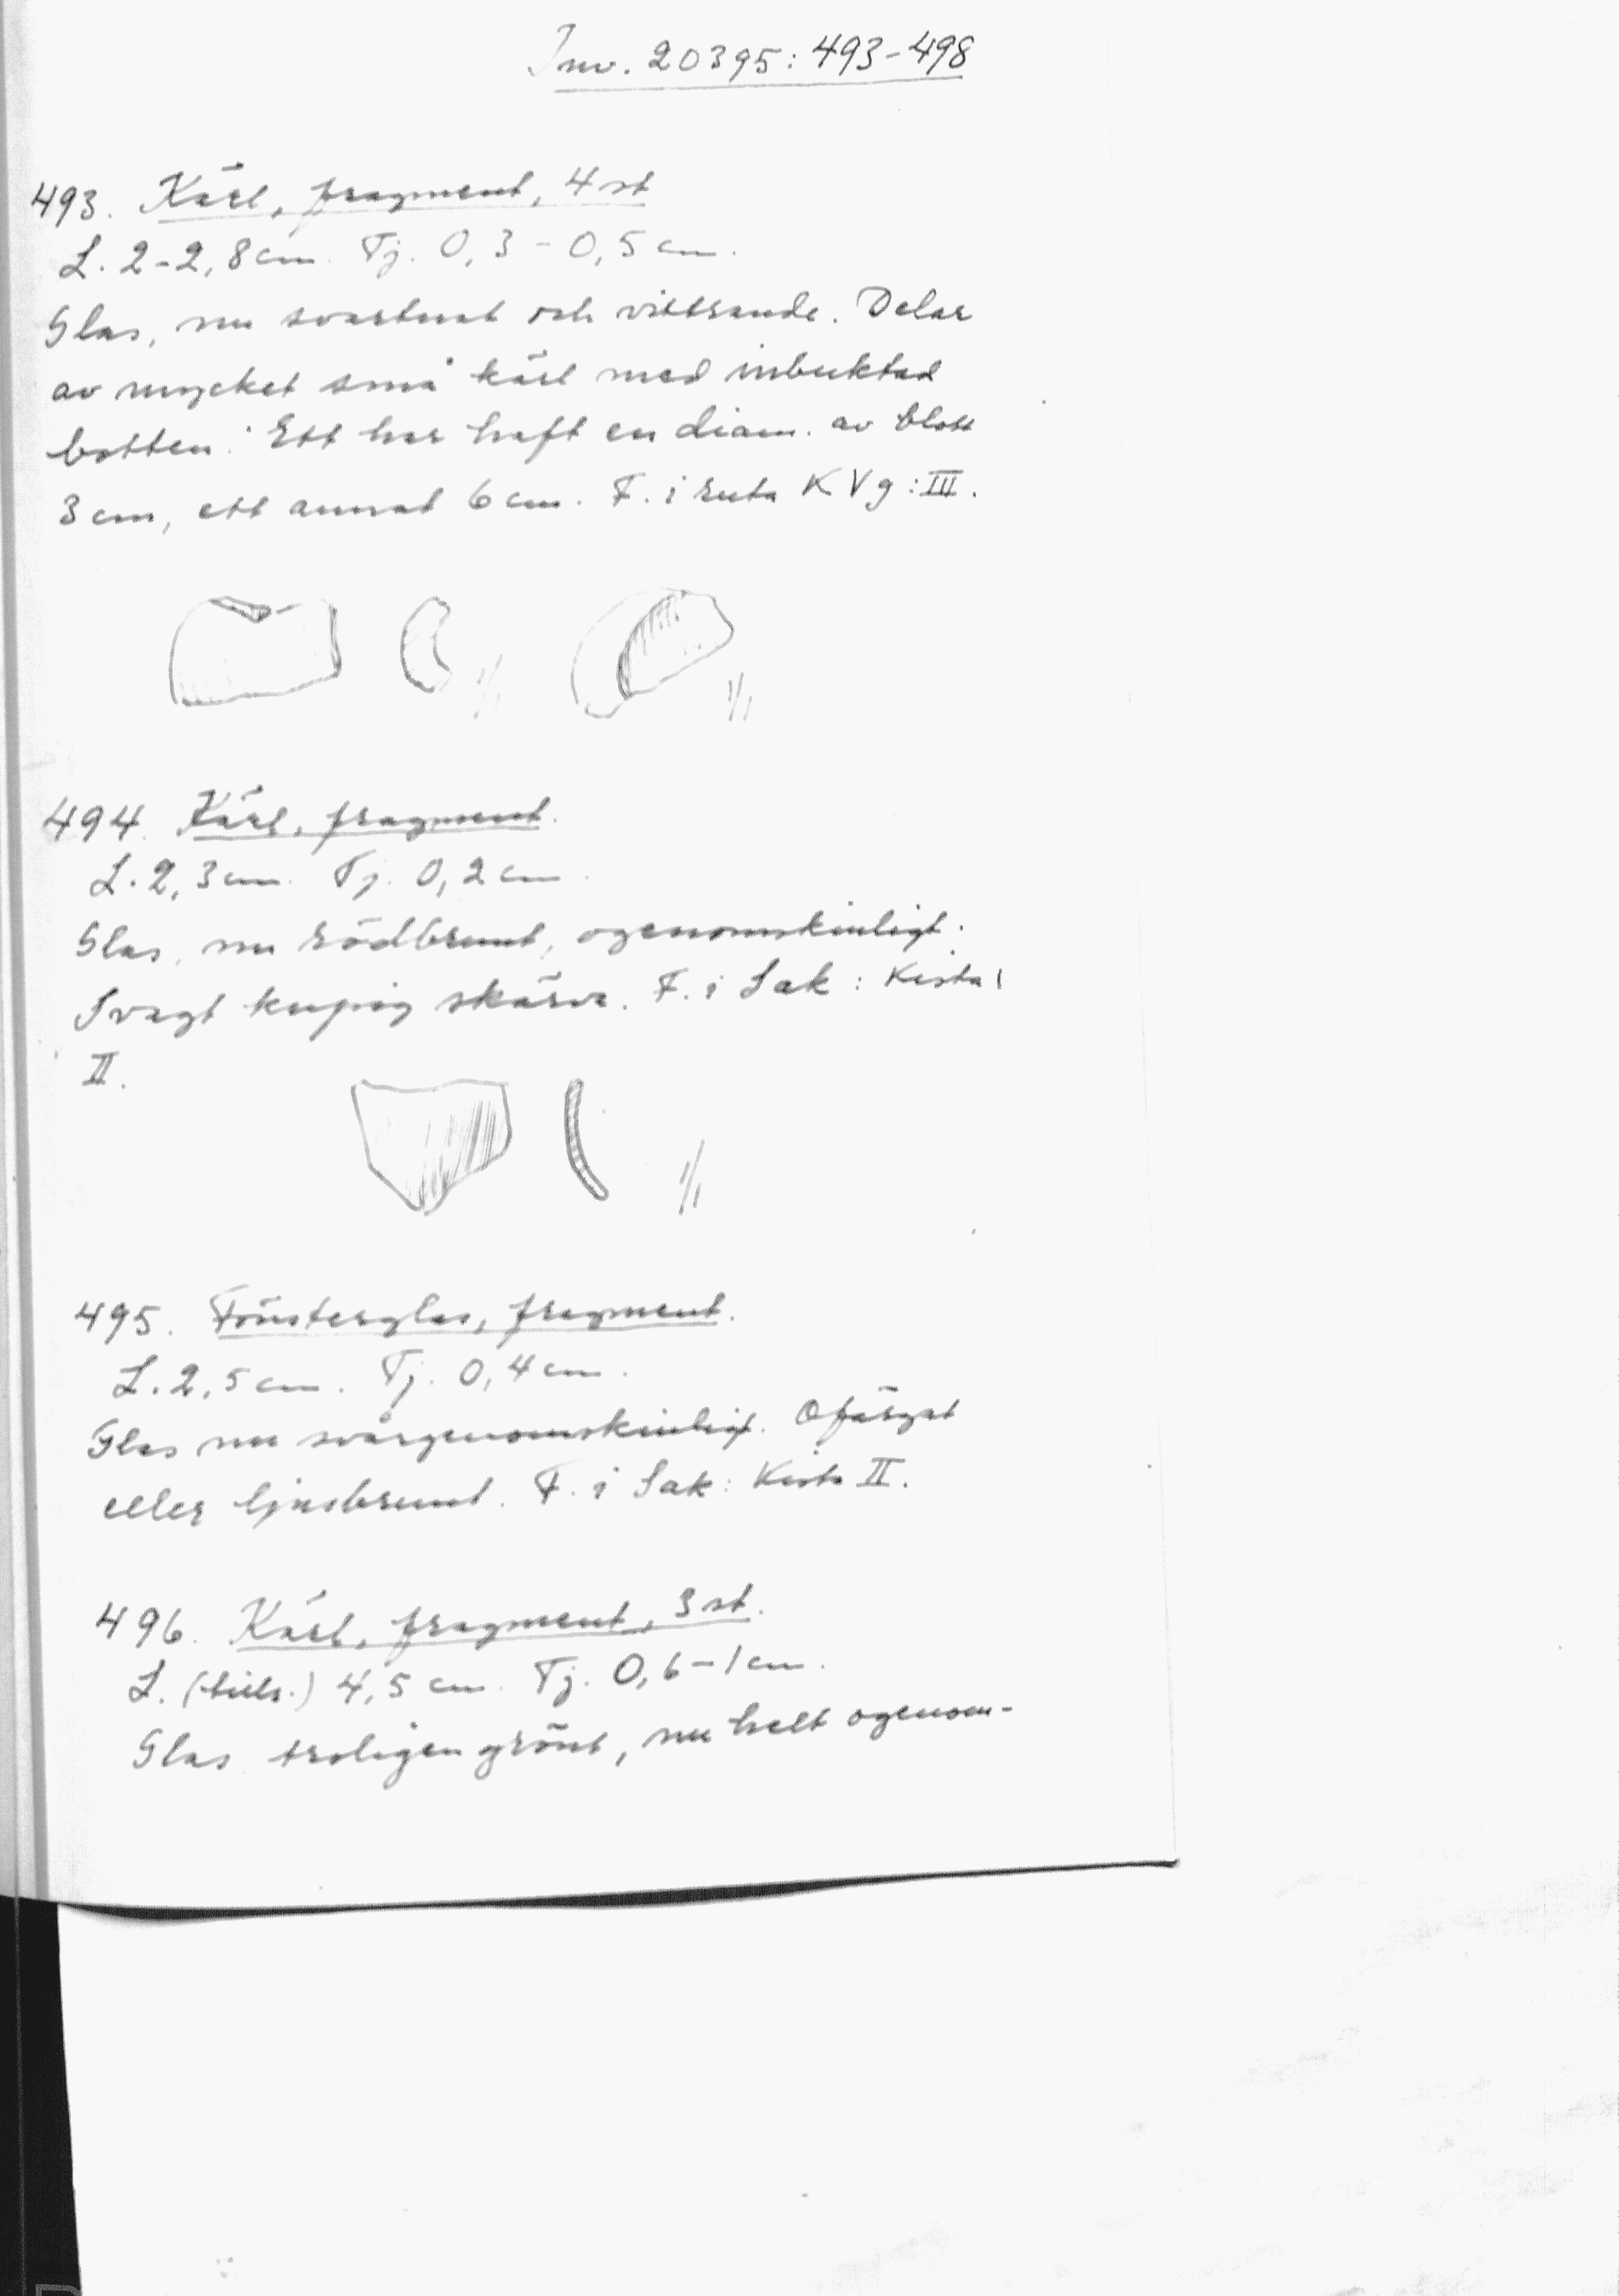 Inv. 20395:493-498
493. Kärl, fragment, 4 st
L. 2-2,8 cm. Tj. 0,3-0,5 cm.
Glas, nu svartnat och vittrande. Delar
av mycket små kärl med inbuktad
botten. Ett har haft en diam. av blott
3 cm, ett annat 6 cm. F. i ruta K Vg:III.
1/1
1/1
494. Kärl, fragment.
L. 2,3 cm. Tj. 0,2 cm.
Glas, nu rödbrunt, ogenomskinligt.
Svagt kupig skärva. F. i Sak: Kista
II.
1/1
495. Fönsterglas, fragment.
L. 2,5 cm. Tj. 0,4 cm.
Glas nu svårgenomskinligt. Ofärgat
eller ljusbrunt. F. i Sak: Kista II.
496. Kärl, fragment, 3 st.
L. 4,5 cm. Tj. 0,6-1 cm.
Glas troligen grönt, nu helt ogenom-